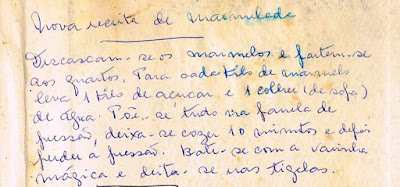 Nova receita de Marmelada
Discascam-se os marmelos e partem-se
aos quartos. Para cada kilo de marmelo
leva 1 kilo de açucar e 1 colher (de sopa)
de água. Põe-se tudo na panela de
pressão, deixa-se cozer 10 minutos e depois
perder a pressão. Bate-se com a varinha
mágica e deita-se nas tigelas.